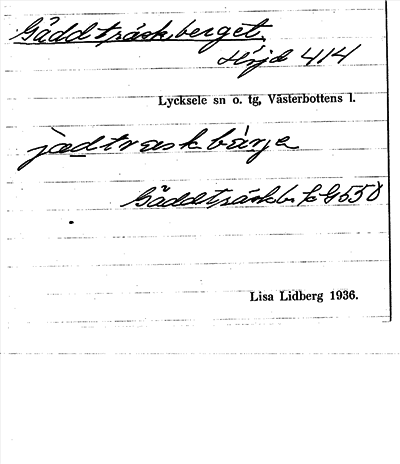 Gäddträskberget
Höjd 414
Lycksele sn o. tg, Västerbottens l.
jädtraskbärje
Gäddträskb. G550
Lisa Lidberg 1936.